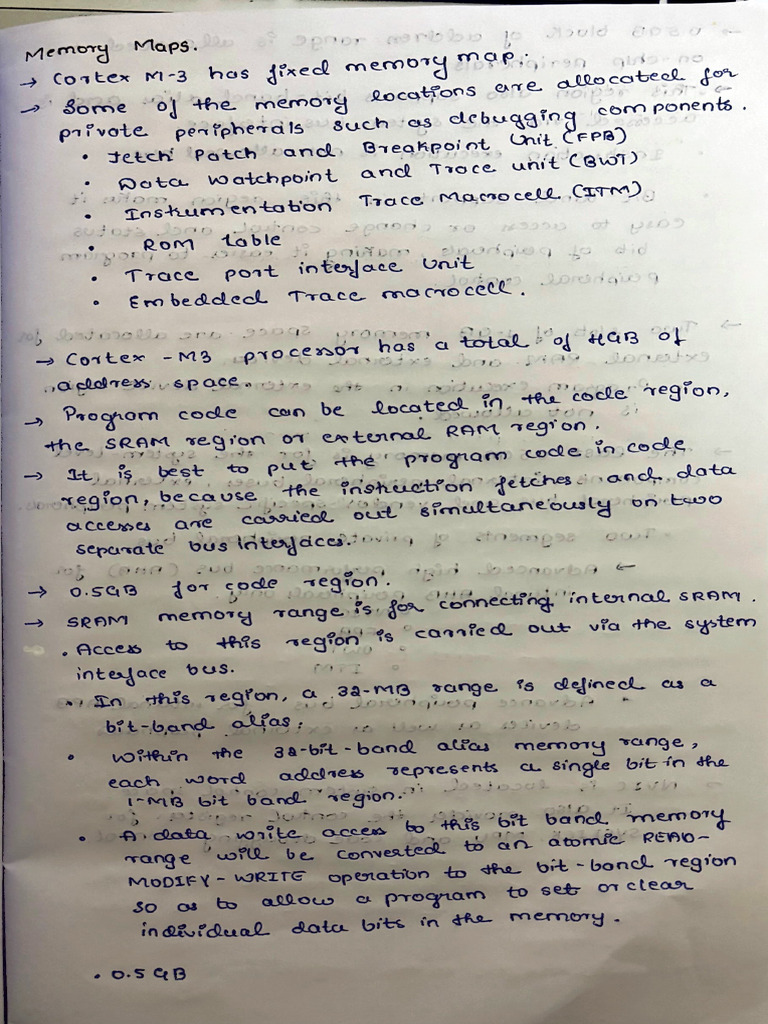 Memory Maps.
→ Cortex M-3 has fixed memory map.
→ Some of the memory locations are allocated for
private peripherals such as debugging components.
• Fetch Patch and Breakpoint Unit (FPB)
• Data Watchpoint and Trace unit (BWT)
• Instrumentation Trace Macrocell (ITM)
• ROM table
• Trace port interface Unit
• Embedded Trace macrocell.
→ Cortex -M3 processor has a total of 4GB of
address space.
→ Program code can be located in the code region,
the SRAM region or external RAM region.
→ It is best to put the program code in code
region, because the instruction fetches and data
accesses are carried out simultaneously on two
separate bus interfaces.
→ 0.5GB for code region.
→ SRAM memory range is for connecting internal SRAM.
• Access to this region is carried out via the system
interface bus.
• In this region, a 32-MB range is defined as a
bit-band alias.
• Within the 32-bit-band alias memory range,
each word address represents a single bit in the
1-MB bit band region.
• A data write access to this bit band memory
range will be converted to an atomic READ-
MODIFY-WRITE operation to the bit-band region
so as to allow a program to set or clear
individual data bits in the memory.
• 0.5 GB